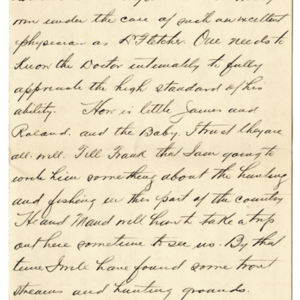 are under the care of such an excellent
physician as Dr Fletcher. One needs to
know the Doctor intimately to fully
appreciate the high standard of his
ability. How is little James and
Roland, and the Baby. I trust they are
all well. Tell Frank that I am going to
write him something about the hunting
and fishing in this part of the country
He and Maud will have to take a trip
out here sometime to see us. By that
time I will have found some trout
streams and hunting grounds.